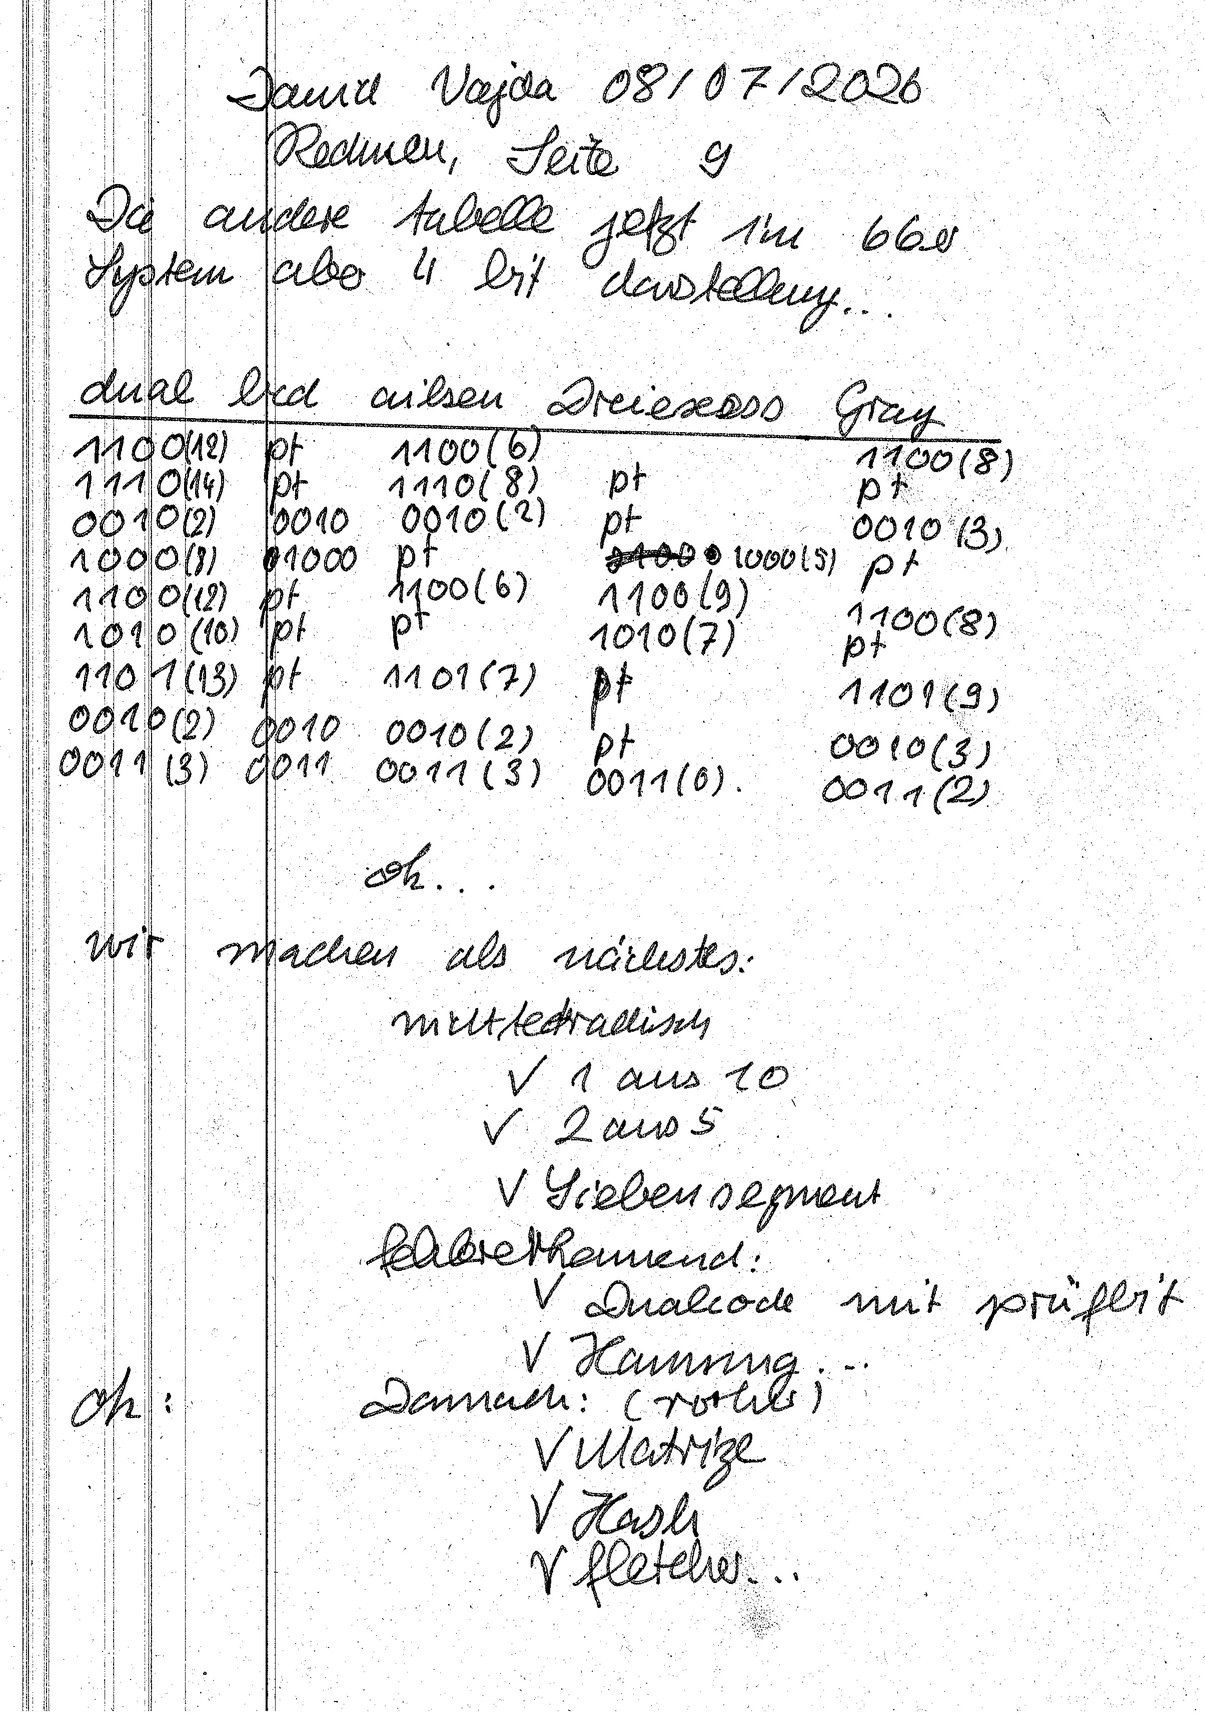 David Vajda 08/07/2026
Rechnen, Seite 9
Die andere tabelle jetzt im 66er
System aber 4 bit darstellung...
dual bcd aiken Dreiexcess Gray
1100(12) pt 1100(6) 1100(8)
1110(14) pt 1110(8) pt pt
0010(2) 0010 0010(2) pt 0010(3)
1000(8) 1000 pt 1000(5) pt
1100(12) pt 1100(6) 1100(9) 1100(8)
1010(10) pt pt 1010(7) pt
1101(13) pt 1101(7) pt 1101(9)
0010(2) 0010 0010(2) pt 0010(3)
0011(3) 0011 0011(3) 0011(0). 0011(2)
ok...
wir machen als nächstes:
nicht tetradisch
√ 1 aus 10
√ 2 aus 5
√ Siebensegment
fehlererkennend:
√ Dualcode mit prüfbit
√ Hamming...
ok: Danach: (vorher)
√ Matrize
√ Hash
√ fletcher...